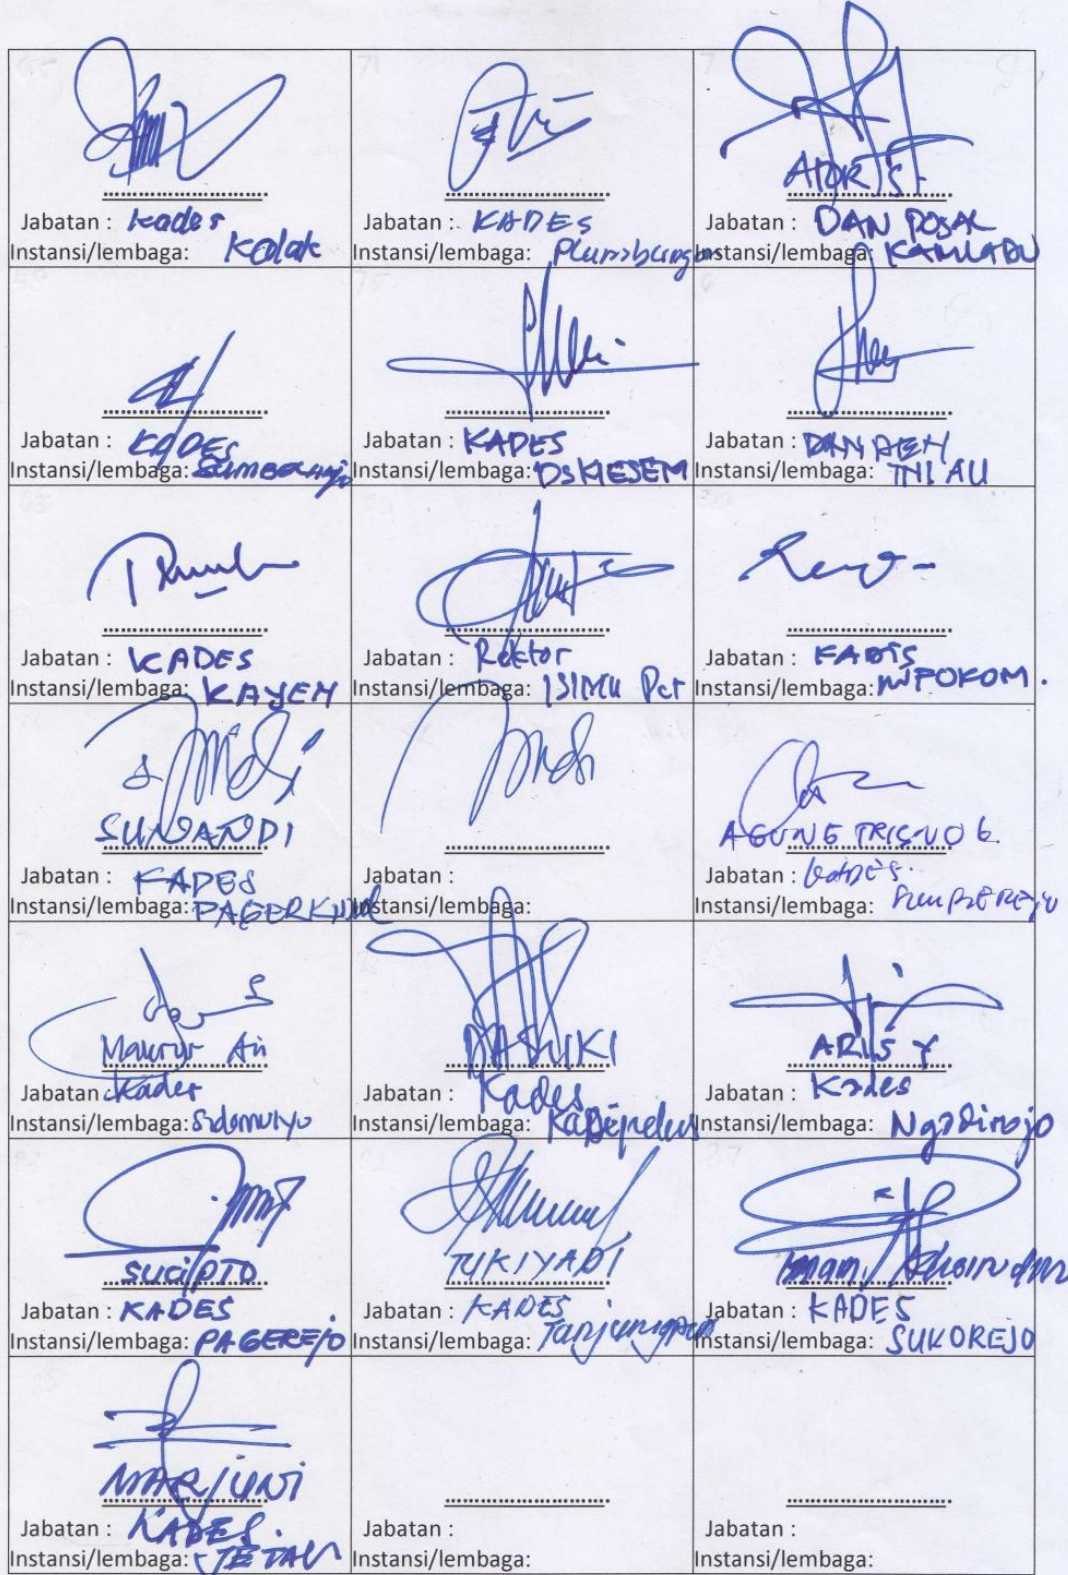 Jabatan : Kades
Instansi/lembaga: Kalak
Jabatan : KADES
Instansi/lembaga: Plumbungan
ADK IS
Jabatan : DAN POSAL
Instansi/lembaga: KAMLADU
Jabatan : KADES
Instansi/lembaga: Sumberharjo
Jabatan : KADES
Instansi/lembaga: DS MESEM
Jabatan :
Instansi/lembaga: TNI AU
Jabatan : KADES
Instansi/lembaga: KAYEN
Jabatan : Rektor
Instansi/lembaga: ISIMU Pct
Jabatan : KADIS
Instansi/lembaga: INFOKOM.
SUNANDI
Jabatan : KADES
Instansi/lembaga: PAGERKIDUL
Jabatan :
Instansi/lembaga:
AGUNG TRISNO
Jabatan : Kades.
Instansi/lembaga:
Jabatan : Kades
Instansi/lembaga: Sidomulyo
DASUKI
Jabatan : Kades
Instansi/lembaga:
ARIS Y
Jabatan : Kades
Instansi/lembaga: Ngadirojo
SUCIPTO
Jabatan : KADES
Instansi/lembaga: PAGEREJO
TUKIYADI
Jabatan : KADES
Instansi/lembaga: Tanjungpuro
Iman Khoirudin
Jabatan : KADES
Instansi/lembaga: SUKOREJO
MARJUNI
Jabatan : KADES.
Instansi/lembaga: TETAN
Jabatan :
Instansi/lembaga:
Jabatan :
Instansi/lembaga: